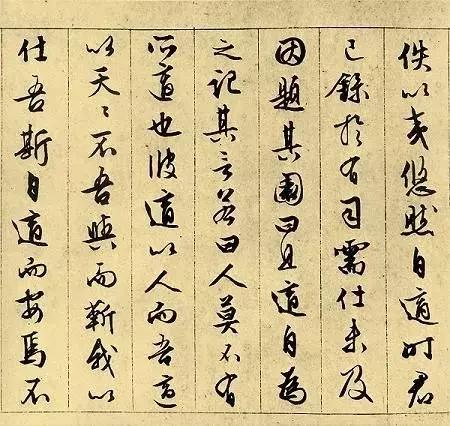 佚以老悠然自適時君
已錄於有司需仕未及
因題其園曰且適自為
之記其言若曰人莫不有
所適也彼適以人而吾適
以天〻不吾與而靳我以
仕吾斯自適而安焉不